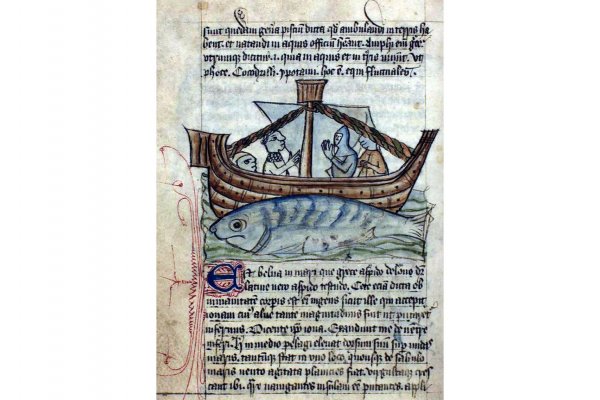 sunt quedam gen̄a pisciū dicta qd̄ ambulandi in terris ha
bent. et natandi in aquis officiū hn̄ant. Amphi em̄ grece
utrumque dicitur .i. qui in aquis et in t̄ris uiuūt. ut
phoce. Cocodrilli. ypotami. hoc ē. equi fluctuales.
Est belua in mari que grece aspido delone dr̄
latine uero aspido testudo. Cete eciā dicta ob
inmanitatem corpis est em̄ ingens sicut ille qui accepit
ionam cui᷒ alue tante magnitudinis fuit ut putaret
infernus. Dicente ip̄o iona. Exaudiuit me de uentre
inferi. h̄ in medio pelagi eleuat dorsum suū sup undas
maris. tantūque stat in uno loco. quousque de sabulo
maris uento agitata planicies fiat. uirgultaque cres
cant ibi. Qr̄ nauigantes insulam eē putantes. appli